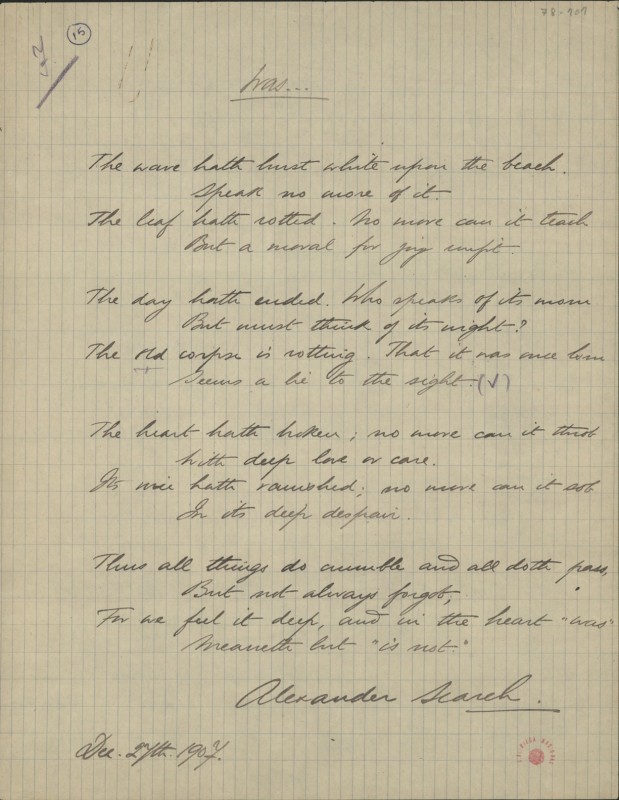 78-107
15
Was...
The wave hath burst white upon the beach.
Speak no more of it.
The leaf hath rotted. No more can it teach
But a moral for joy unfit.
The day hath ended. Who speaks of its morn
But must think of its night?
The old corpse is rotting. That it was once born
Seems a lie to the sight. (√)
The heart hath broken; no more can it throb
With deep love or care.
Its voice hath vanished; no more can it sob
In its deep despair.
Thus all things do crumble and all doth pass,
But not always forgot,
For we feel it deep, and in the heart "was"
Meaneth but "is not."
Alexander Search.
Dec. 27th. 1907.